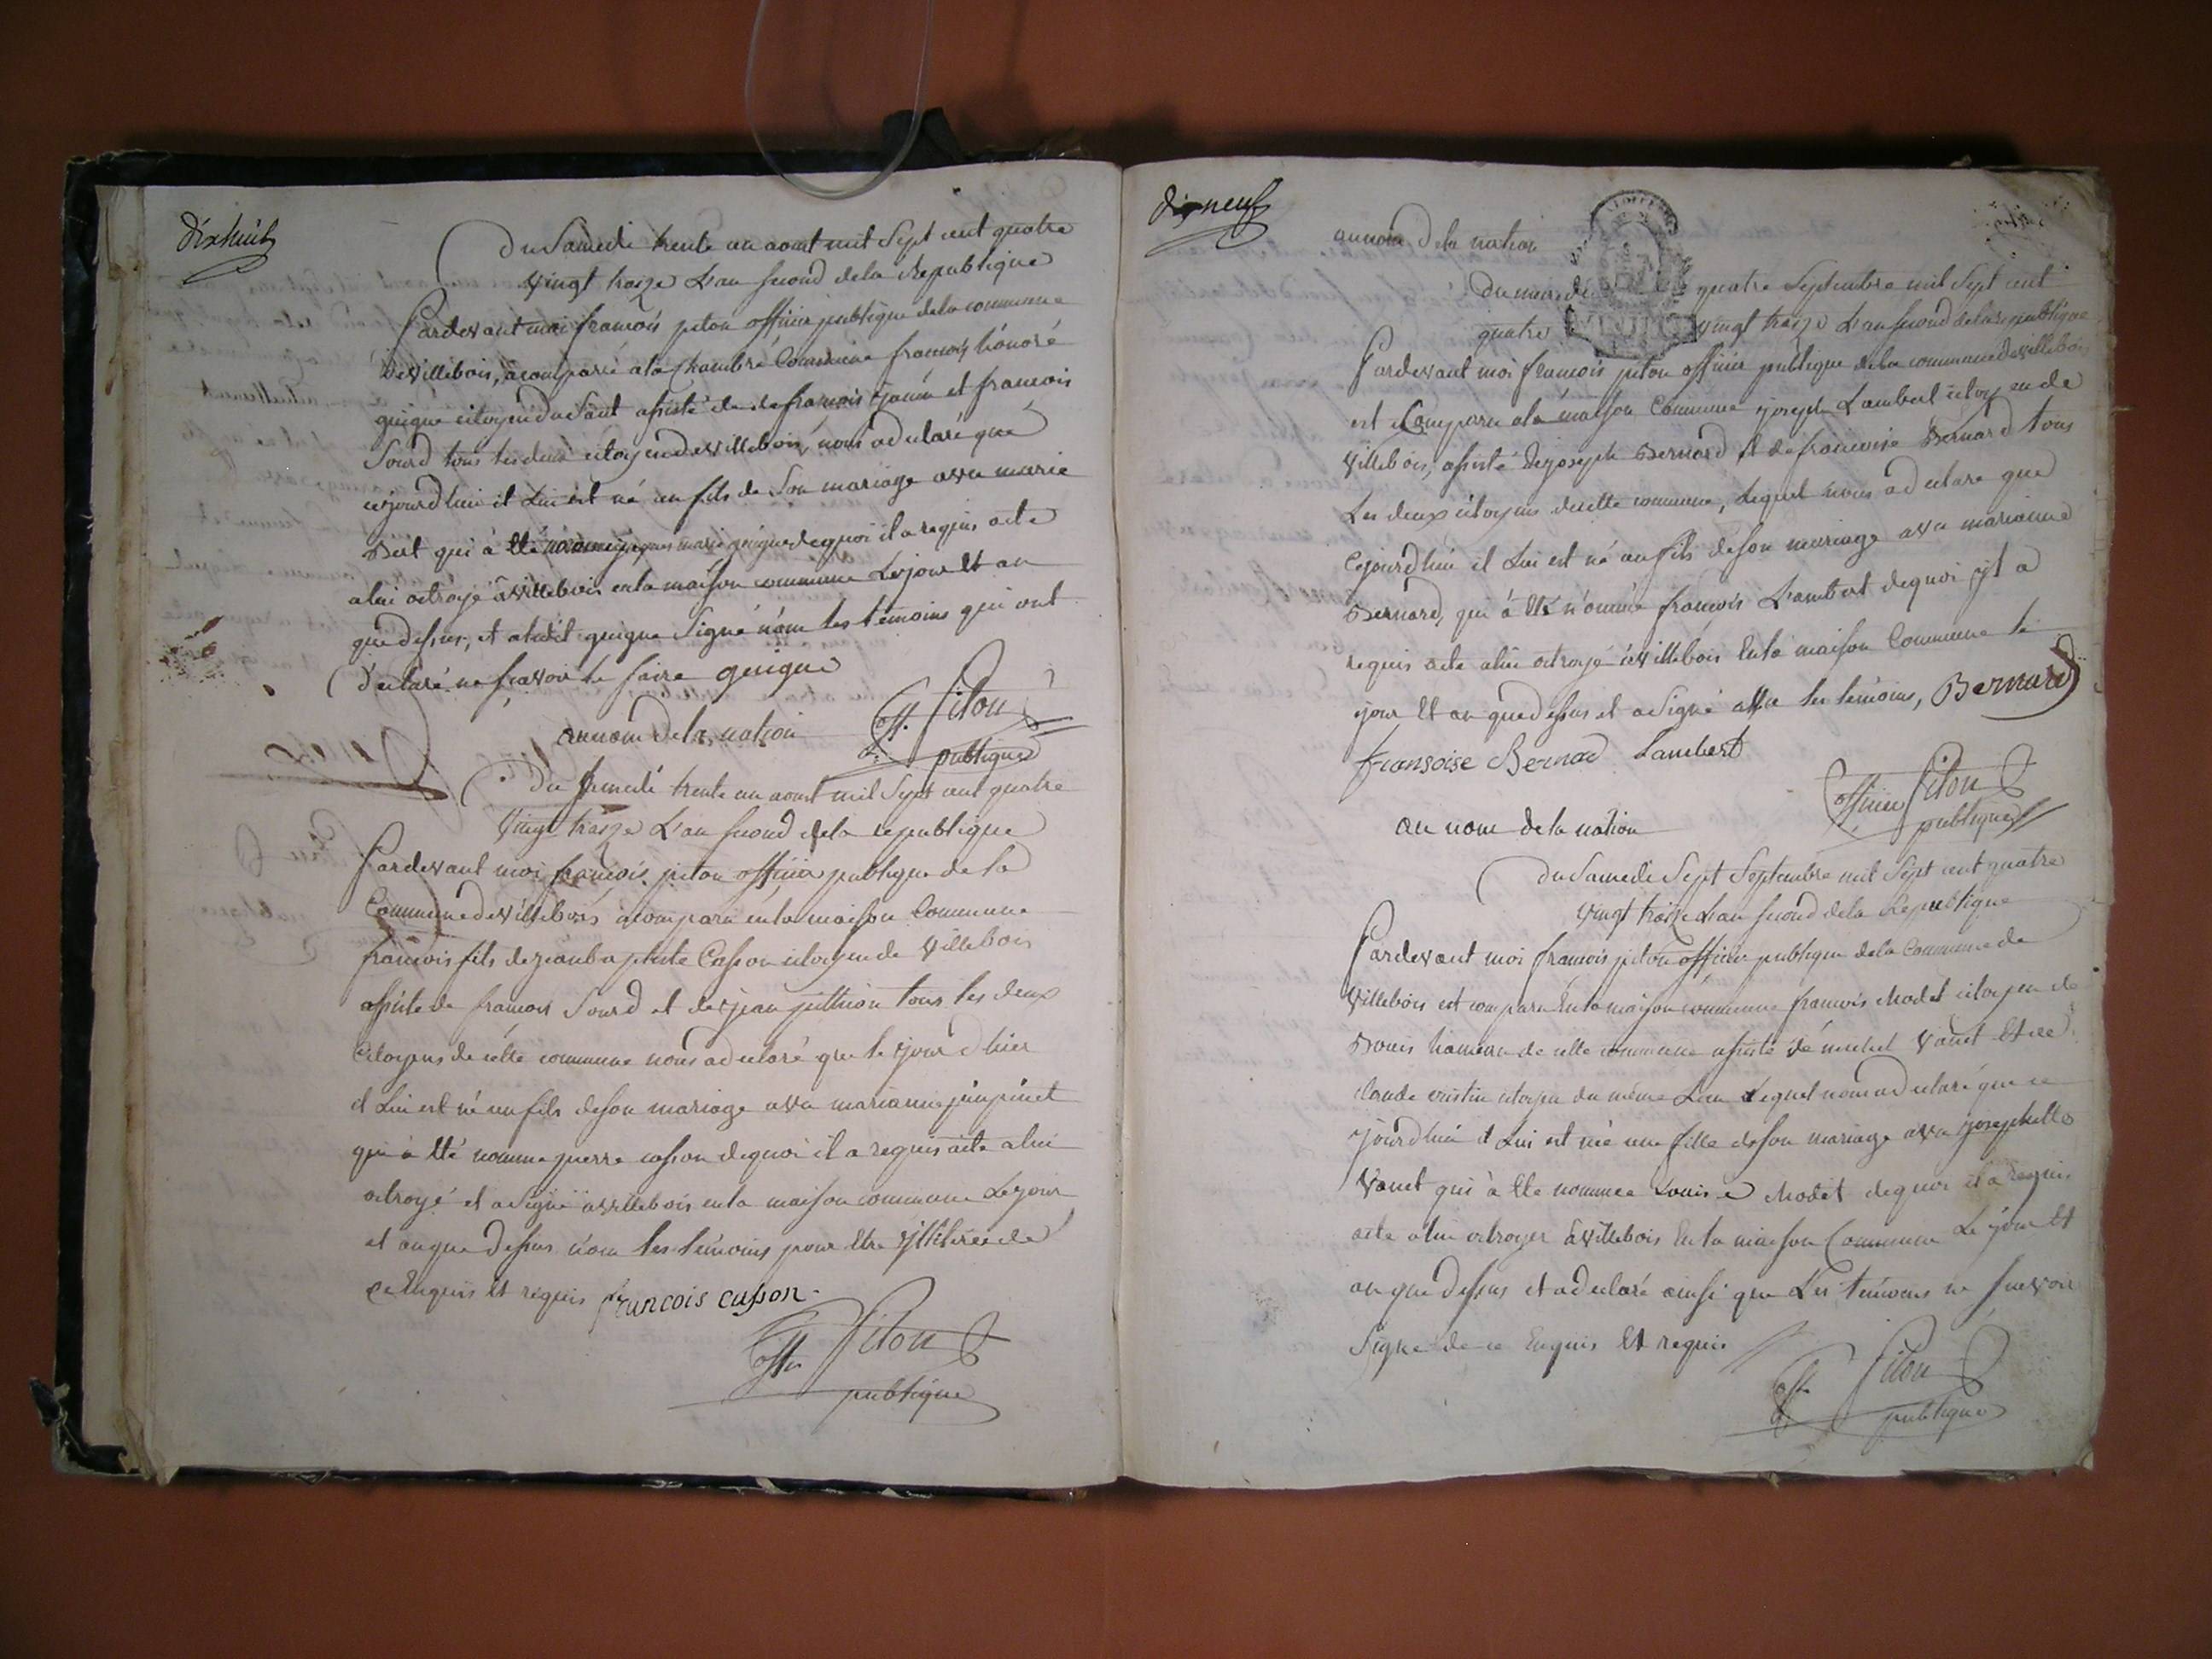 dixhuit
Du Samedi trente un aout mil Sept cent quatre
vingt traize L'an second de la Republique
Pardevant moi francois piton officier publique de la commune
de villebois, a comparu a la Chambre Commune francois honoré
guigue citoyen du Sault assisté de francois et francois
Sourd tous les deux citoyen de villebois, nous a declaré que
cejourdhui il Lui est né un fils de Son mariage avec marie
Bert qui à été marie guigue dequoi il a requis acte
a lui octroyé a villebois en la maison commune Le jour Et an
que dessus, et a ledit guigue Signé non les temoins qui ont
declaré ne scavoir le faire guigue
off. Piton
publique
au nom de la nation
Du samedi trente un aout mil Sept cent quatre
vingt traize L'an second de la republique
Pardevant moi francois piton officier publique de la
Commune de villebois a comparu en la maison Commune
francois fils de jean baptiste Casson citoyen de villebois
assisté de francois Sourd et de jean tous les deux
Citoyens de cette commune nous a declaré que le jour d'hier
il Lui est né un fils de son mariage avec marianne
qui à été nommé pierre casson dequoi il a requis acte a lui
octroyé et a signé a villebois en la maison commune Le jour
et an que dessus non les temoins pour etre illiterés de
ce Enquis Et requis francois cusson.
offi Piton
publique
dixneuf
au nom de la nation
Du quatre Septembre mil Sept cent
quatre vingt traize L'an second de la republique
Pardevant moi francois piton officier publique de la commune de villebois
est Comparu a la maison Commune joseph Lambert citoyen de
villebois, assisté de joseph Bernard et de francoise Bernard tous
Les deux citoyens de cette commune, Lequel nous a declare que
Cejourdhui il Lui est né un fils de son mariage avec marianne
Bernard, qui à été nommé francois Lambert dequoi il a
requis acte a lui octroyé a villebois En la maison Commune le
jour Et an que dessus et a Signé avec les temoins, Bernard
fransoise Bernard Lambert
officier Piton
publique
au nom de la nation
Du Samedi Sept Septembre mil Sept cent quatre
vingt traize L'an second de la Republique
Pardevant moi francois piton officier publique de la Commune de
villebois est comparu En la maison commune francois Modet citoyen de
Bouis hameau de cette commune assisté de michel vanet Et de
Claude citoyen du même Lieu Lequel nous a declaré que ce
jourdhui il Lui est né une fille de son mariage avec josephette
vanet qui à été nommée Louise Modet dequoi il a requis
acte a lui octroyer a villebois En la maison Commune Le jour Et
an que dessus et a declaré ainsi que Les temoins ne scavoir
Signé de ce Enquis Et requis
offi Piton
publique